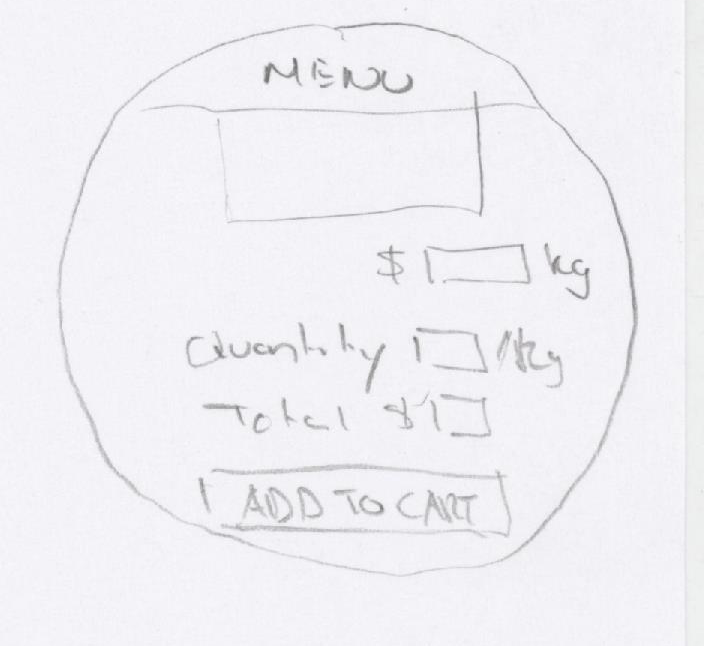 MENU
$ kg
Quantity /kg
Total $
ADD TO CART